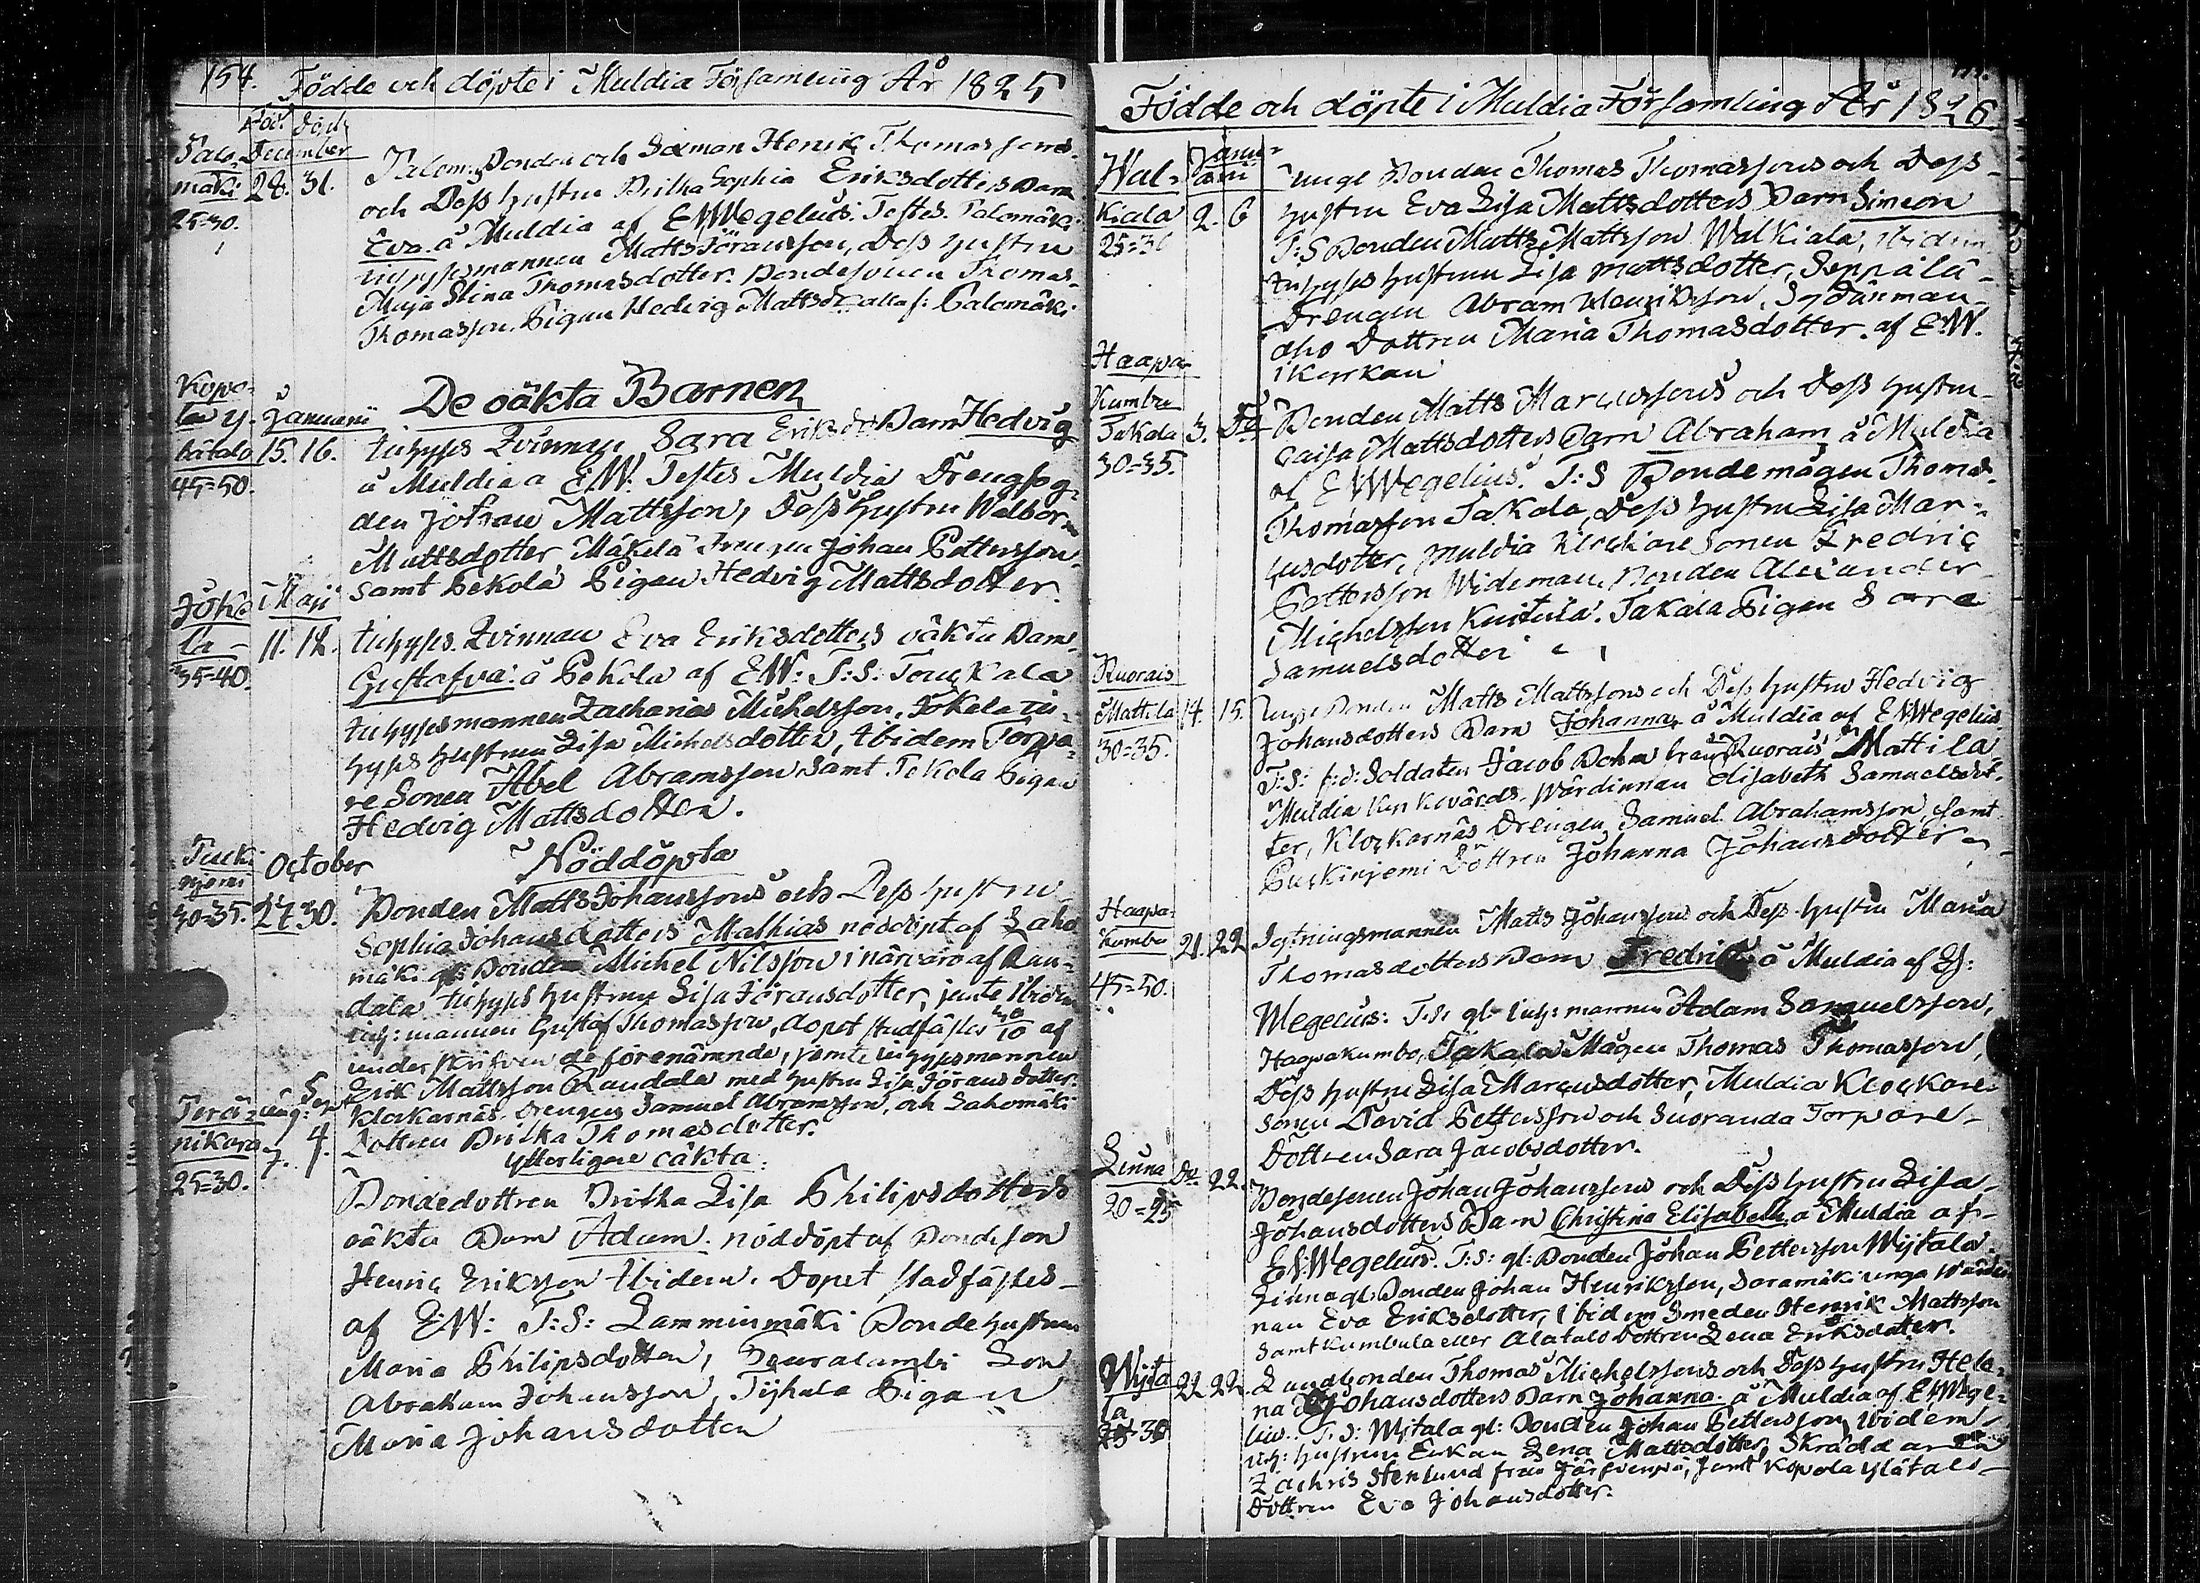 154. Födde och döpte i Muldia Församling År 1825
Föd. döpt
December
Palo-
mäki 28. 31.
25=30.
Palom. Bonden och Sexman Henric Thomassons
och Dess hustru Britha Sophia Eriksdotters Barn
Eva å Muldia af ENWegelius. Testes. Palomäki
inhysesmannen Matts Göransson, Dess hustru
Maja Stina Thomasdotter. Bondesonen Thomas
Thomasson. Pigan Hedvig Mattsdr alla f: Palomäki
De oäkta Barnen
Kopo-
la y-
lätalo
45=50.
Januarii
15. 16.
inhyses Qvinnan Sara Eriksdrs Barn Hedvig
å Muldia a EW. Testes Muldia Drengfog-
den Johan Mattsson, Dess hustru Walbor
Mattsdotter Mäkelä Drengen Johan Pettersson
samt Pekola Pigan Hedvig Mattsdotter.
Joke
la
35=40.
Maji
11. 12.
inhyses Qvinnan Eva Eriksdotters oäkta Barn
Gustafva å Pekola af EW: T:S: Touckala
inhysesmannen Zacharias Michelsson, Jokela in-
hyses hustrun Lisa Michelsdotter, Ibidem Torpa-
re Sonen Abel Abramsson samt Pekola Pigan
Hedvig Mattsdotter.
Nöddöpta
Puski
njemi
30=35.
October
27. 30.
Bonden Matts Johanssons och Dess hustru
Sophia Johansdotters Mathias nöddöpt af Laho
mäki gl: Bonden Michel Nilsson i närvaro af Ran-
data inhyses hustrun Lisa Göransdotter, jemte Ibidem
inh: mannen Gustaf Thomasson, dopet stadfästes 30/10 af
underskrifven de förenämnde, jemte inhysesmannen
Erik Mattsson Randala med hustru Lisa Göransdotter
Klockarnäs Drengen Samuel Abramsson, och Lahomäki
Dottren Britha Thomasdotter.
Ytterligare oäkta:
Terä-
nikara
25=30.
Aug: Sep
7. 4.
Bondedottren Britha Lisa Philipsdotters
oäkta Barn Adam. nöddöpt af Bondeson
Henric Eriksson Ibidem. Dopet stadfästes
af EW: T:S: Lamminmäki Bonde hustrun
Maria Philipsdotter, Son
Abraham Johansson, Tyhala Pigan
Maria Johansdotter
Födde och döpte i Muldia Församling År 1826.
Wal-
kiala
25=30
Janu-
arii
2. 6
unge Bonden Thomas Thomassons och Dess
hustru Eva Lisa Mattsdotters Barn Simeon
T:S Bonden Matts Mattsson Walkiala, Ibidem
inhyses hustrun Lisa Mattsdotter, Seppälä
Drengen Abram Henriksson, Sydänman-
aho Dottren Maria Thomasdotter. af EW.
i Kyrkan
Haapa-
Kumbu
Takala
30=35.
3. Do
Bonden Matts Marcussons och Dess hustru
Caisa Mattsdotters Barn Abraham å Muldia
af ENWegelius. T:S Bondemågen Thomas
Thomasson Takala, Dess hustru Lisa Mar-
cusdotter, Muldia Klockare Sonen Fredric
Pettersson Wideman. Bonden Alexander
Michelsson Knitula. Takala Pigan Sara
Samuelsdotter
Ruorais
Mattila
30=35.
14. 15.
Unge Bonden Matts Mattssons och Dess hustru Hedvig
Johansdotters Barn Johanna, å Muldia af ENWegelius
T:S: f:d: Soldaten Jacob Bohm från Ruorais Mattila
Muldia Kyrkovärds Wärdinnan Elisabeth Samuelsdot-
ter, Klockarnäs Drengen Samuel Abrahamsson, samt
Puckinjemi Dottren Johanna Johansdotter
Haapa-
kumbu
45=50.
21. 22
Igtningsmannen Matts Johanssons och Dess hustru Maria
Thomasdotters Barn Fredric å Muldia af EN:
Wegelius: T:S: gl: inh: mannen Adam Samuelsson,
Haapakumbu, Takala Mågen Thomas Thomasson,
Dess hustru Lisa Marcusdotter, Muldia Klockare
Sonen David Pettersson och Suoranda Torpare-
Dottren Sara Jacobsdotter.
Linna
20=25
Do 22.
Bondesonen Johan Johanssons och Dess hustru Lisa
Johansdotters Barn Christina Elisabeth å Muldia af
ENWegelius. T:S: gl: Bonden Johan Pettersson Wijtala.
Linna gl: Bonden Johan Henriksson, Saramäki unga Wärdin
nan Eva Eriksdotter, Ibidem Smeden Henrik Mattsson
samt Kumbula eller Alatalo Dottren Lena Eriksdotter.
Wijta
la
25=30
22 22.
Landbonden Thomas Michelssons och Dess hustru Hele-
na Johansdotters Barn Johanna. å Muldia af ENWege-
lius. T:S: Wijtala gl: Bonden Johan Pettersson, Ibidem
inh: hustrun Enkan Lena Mattsdotter, Skräddaren
Zachris Stenlund från Järfvenpä, samt Kopola Ylätalo
Dottren Eva Johansdotter.